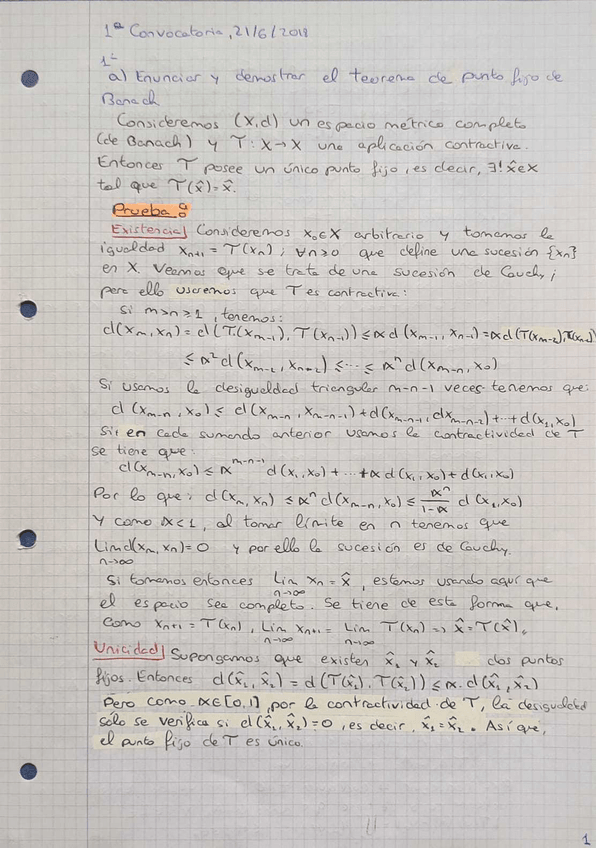 1ª Convocatoria, 21/6/2018
1º
a) Enunciar y demostrar el teorema de punto fijo de
Banach
Consideremos (X,d) un espacio métrico completo
(de Banach) y T: X→X una aplicación contractiva.
Entonces T posee un único punto fijo, es decir, ∃! x̂∈X
tal que T(x̂)=x̂.
Prueba:
Existencia| Consideremos x₀∈X arbitrario y tomamos la
igualdad xₙ₊₁ = T(xₙ); ∀n≥0 que define una sucesión {xₙ}
en X. Veamos que se trata de una sucesión de Cauchy;
para ello usaremos que T es contractiva:
Si m>n≥1, tenemos:
d(xₘ,xₙ) = d(T(xₘ₋₁), T(xₙ₋₁)) ≤ α d(xₘ₋₁, xₙ₋₁) = α d(T(xₘ₋₂),T(xₙ₋₂))
≤ α² d(xₘ₋₂, xₙ₋₂) ≤ ··· ≤ αⁿ d(xₘ₋ₙ, x₀)
Si usamos la desigualdad triangular m-n-1 veces tenemos que:
d(xₘ₋ₙ, x₀) ≤ d(xₘ₋ₙ, xₘ₋ₙ₋₁) + d(xₘ₋ₙ₋₁, xₘ₋ₙ₋₂) + ··· + d(x₁, x₀)
Si en cada sumando anterior usamos la contractividad de T
se tiene que:
d(xₘ₋ₙ, x₀) ≤ α^(m-n-1) d(x₁, x₀) + ··· + α d(x₁, x₀) + d(x₁, x₀)
Por lo que: d(xₘ, xₙ) ≤ αⁿ d(xₘ₋ₙ, x₀) ≤ αⁿ/(1-α) d(x₁, x₀)
Y como α<1, al tomar límite en n tenemos que
Lim n→∞ d(xₘ, xₙ) = 0 y por ello la sucesión es de Cauchy.
Si tomamos entonces Lim n→∞ xₙ = x̂, estamos usando aquí que
el espacio sea completo. Se tiene de esta forma que,
como xₙ₊₁ = T(xₙ), Lim n→∞ xₙ₊₁ = Lim n→∞ T(xₙ) ⇒ x̂ = T(x̂).
Unicidad| Supongamos que existen x̂₁ y x̂₂ dos puntos
fijos. Entonces d(x̂₁, x̂₂) = d(T(x̂₁), T(x̂₂)) ≤ α·d(x̂₁, x̂₂)
Pero como α∈[0,1], por la contractividad de T, la desigualdad
sólo se verifica si d(x̂₁, x̂₂)=0, es decir, x̂₁=x̂₂. Así que,
el punto fijo de T es único.
1